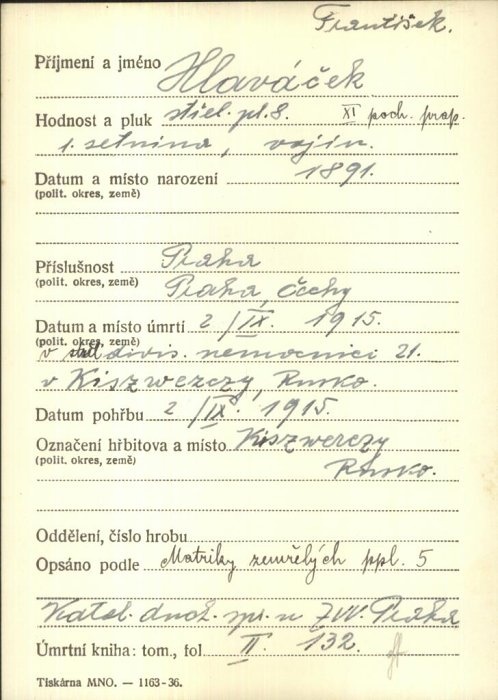 František.
Příjmení a jméno Hlaváček
Hodnost a pluk střel. pl. 8. XI poch. prap.
1. setnina, vojín.
Datum a místo narození 1891.
(polit. okres, země)
Příslušnost Praha
(polit. okres, země) Praha, Čechy
Datum a místo úmrtí 2/IX. 1915.
(polit. okres, země)
v divis. nemocnici 21.
v Kiszwerzy, Rusko.
Datum pohřbu 2/IX. 1915.
Označení hřbitova a místo Kiszwerczy
(polit. okres, země) Rusko.
Oddělení, číslo hrobu
Opsáno podle Matriky zemřelých ppl. 5
Katol. duch. spr. u ZVV. Praha
Úmrtní kniha: tom., fol II. 132.
Tiskárna MNO. — 1163-36.